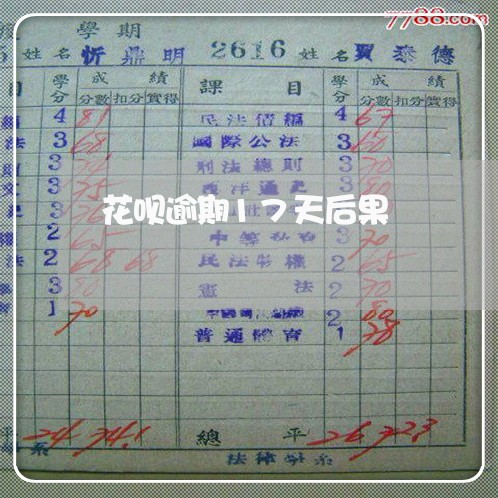 7788.com
學期
姓名 忻鼎明 2616 姓名 賈泰德
目 學分 成績 課目 學分 成績
分數 扣分 實得 分數 扣分 實得
4 81 民法債編 4 67
法 3 68 國際公法 3 60
3 刑法總則 3 70
3 75 西洋通史 3 80
花呗逾期17天后果
2 65 3 70
法 2 68 68 民法物權 2 65
3 80 憲法 2 70
1 70 2 80
普通體育 1 78
平 24 74.1 總平 26 72.3
系 法律學系